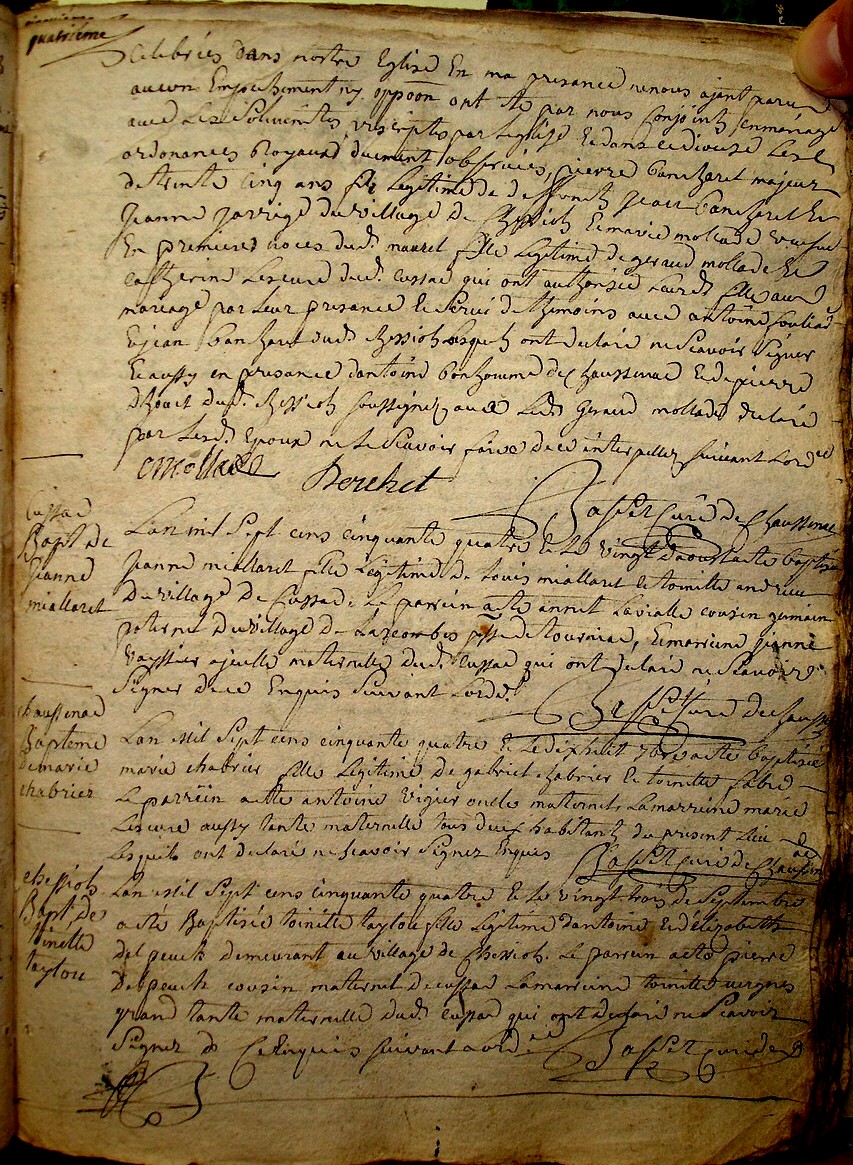 quatrième
Celebrées dans nostre Eglise En ma presance ne nous ayant paru
aucun Empechement ny oppoõn ont ete par nous Conjoints en mariage
avec Les Solemnités prescriptes par Leglise Et dans ce diocese Les
ordonances Royaux duement observées, pierre bancharel majeur
de trente cinq ans fils Legitime de deffunts jean bancharel Et
Jeanne jarrige du village de Chessiol Et marie mollade veuve
En premieres noces dud. fille Legitime de geraud mollade Et
Catherine Lescure dud. Cussac qui ont authorisé Lad. fille aud
mariage par Leur presance Et Servi de themoins avec antoine
Et jean bancharel dud. Chessiol Lesquels ont declaré ne Scavoir Signer
Et aussy en presance dantoine bonhomme de Chaussenac Et de pierre
dud. Chessiol Soussignes avec Led. Geraud mollade declaré
par Lesd. Epoux ne Le Scavoir faire de ce interpellés Suivant Lord.ce
Basset Curé de Chaussenac
Cussac
Bapt. de
Jeanne
miallaret
L'an mil Sept cens cinquante quatre Et Le vingt daoust a ete baptisée
Jeanne miallaret fille Legitime de Louis miallaret Et toinette andrieu
du village de Cussac. Le parrein a ete annet Lavialle cousin germain
paternel du village de Lascombes psse de tourniac, Et marreine jeanne
vayssier ajeulle maternelle dud. Cussac qui ont declaré ne Scavoir
Signer de ce Enquis Suivant Lord.
Basset Curé de Chaussenac
chaussenac
Baptême
de marie
chabrier
L'an Mil Sept cens cinquante quatre Et Le dixhuit 7bre a ete baptisée
marie chabrier fille Legitime de gabriel chabrier Et toinette fabre
Le parrein a ete antoine vigier oncle maternel Lamarreine marie
Lescure aussy tante maternelle tous deux habitants du present Lieu
Lesquels ont declaré ne Scavoir Signer Enquis
Basset Curé de Chaussenac
chessiol
Bapt. de
toinette
taylou
Lan Mil Sept cens cinquante quatre Et Le vingt trois de Septembre
a ete Baptisée toinette taylou fille Legitime dantoine Et délizabeth
delpeuch demeurant au village de Chessiol. Le parrein a ete pierre
Delpeuch cousin maternel de cussac Lamarreine toinette vergnes
grand tante maternelle dud. Cussac qui ont declaré ne Scavoir
Signer de Ce Enquis Suivant Lord.ce
Basset Curé de